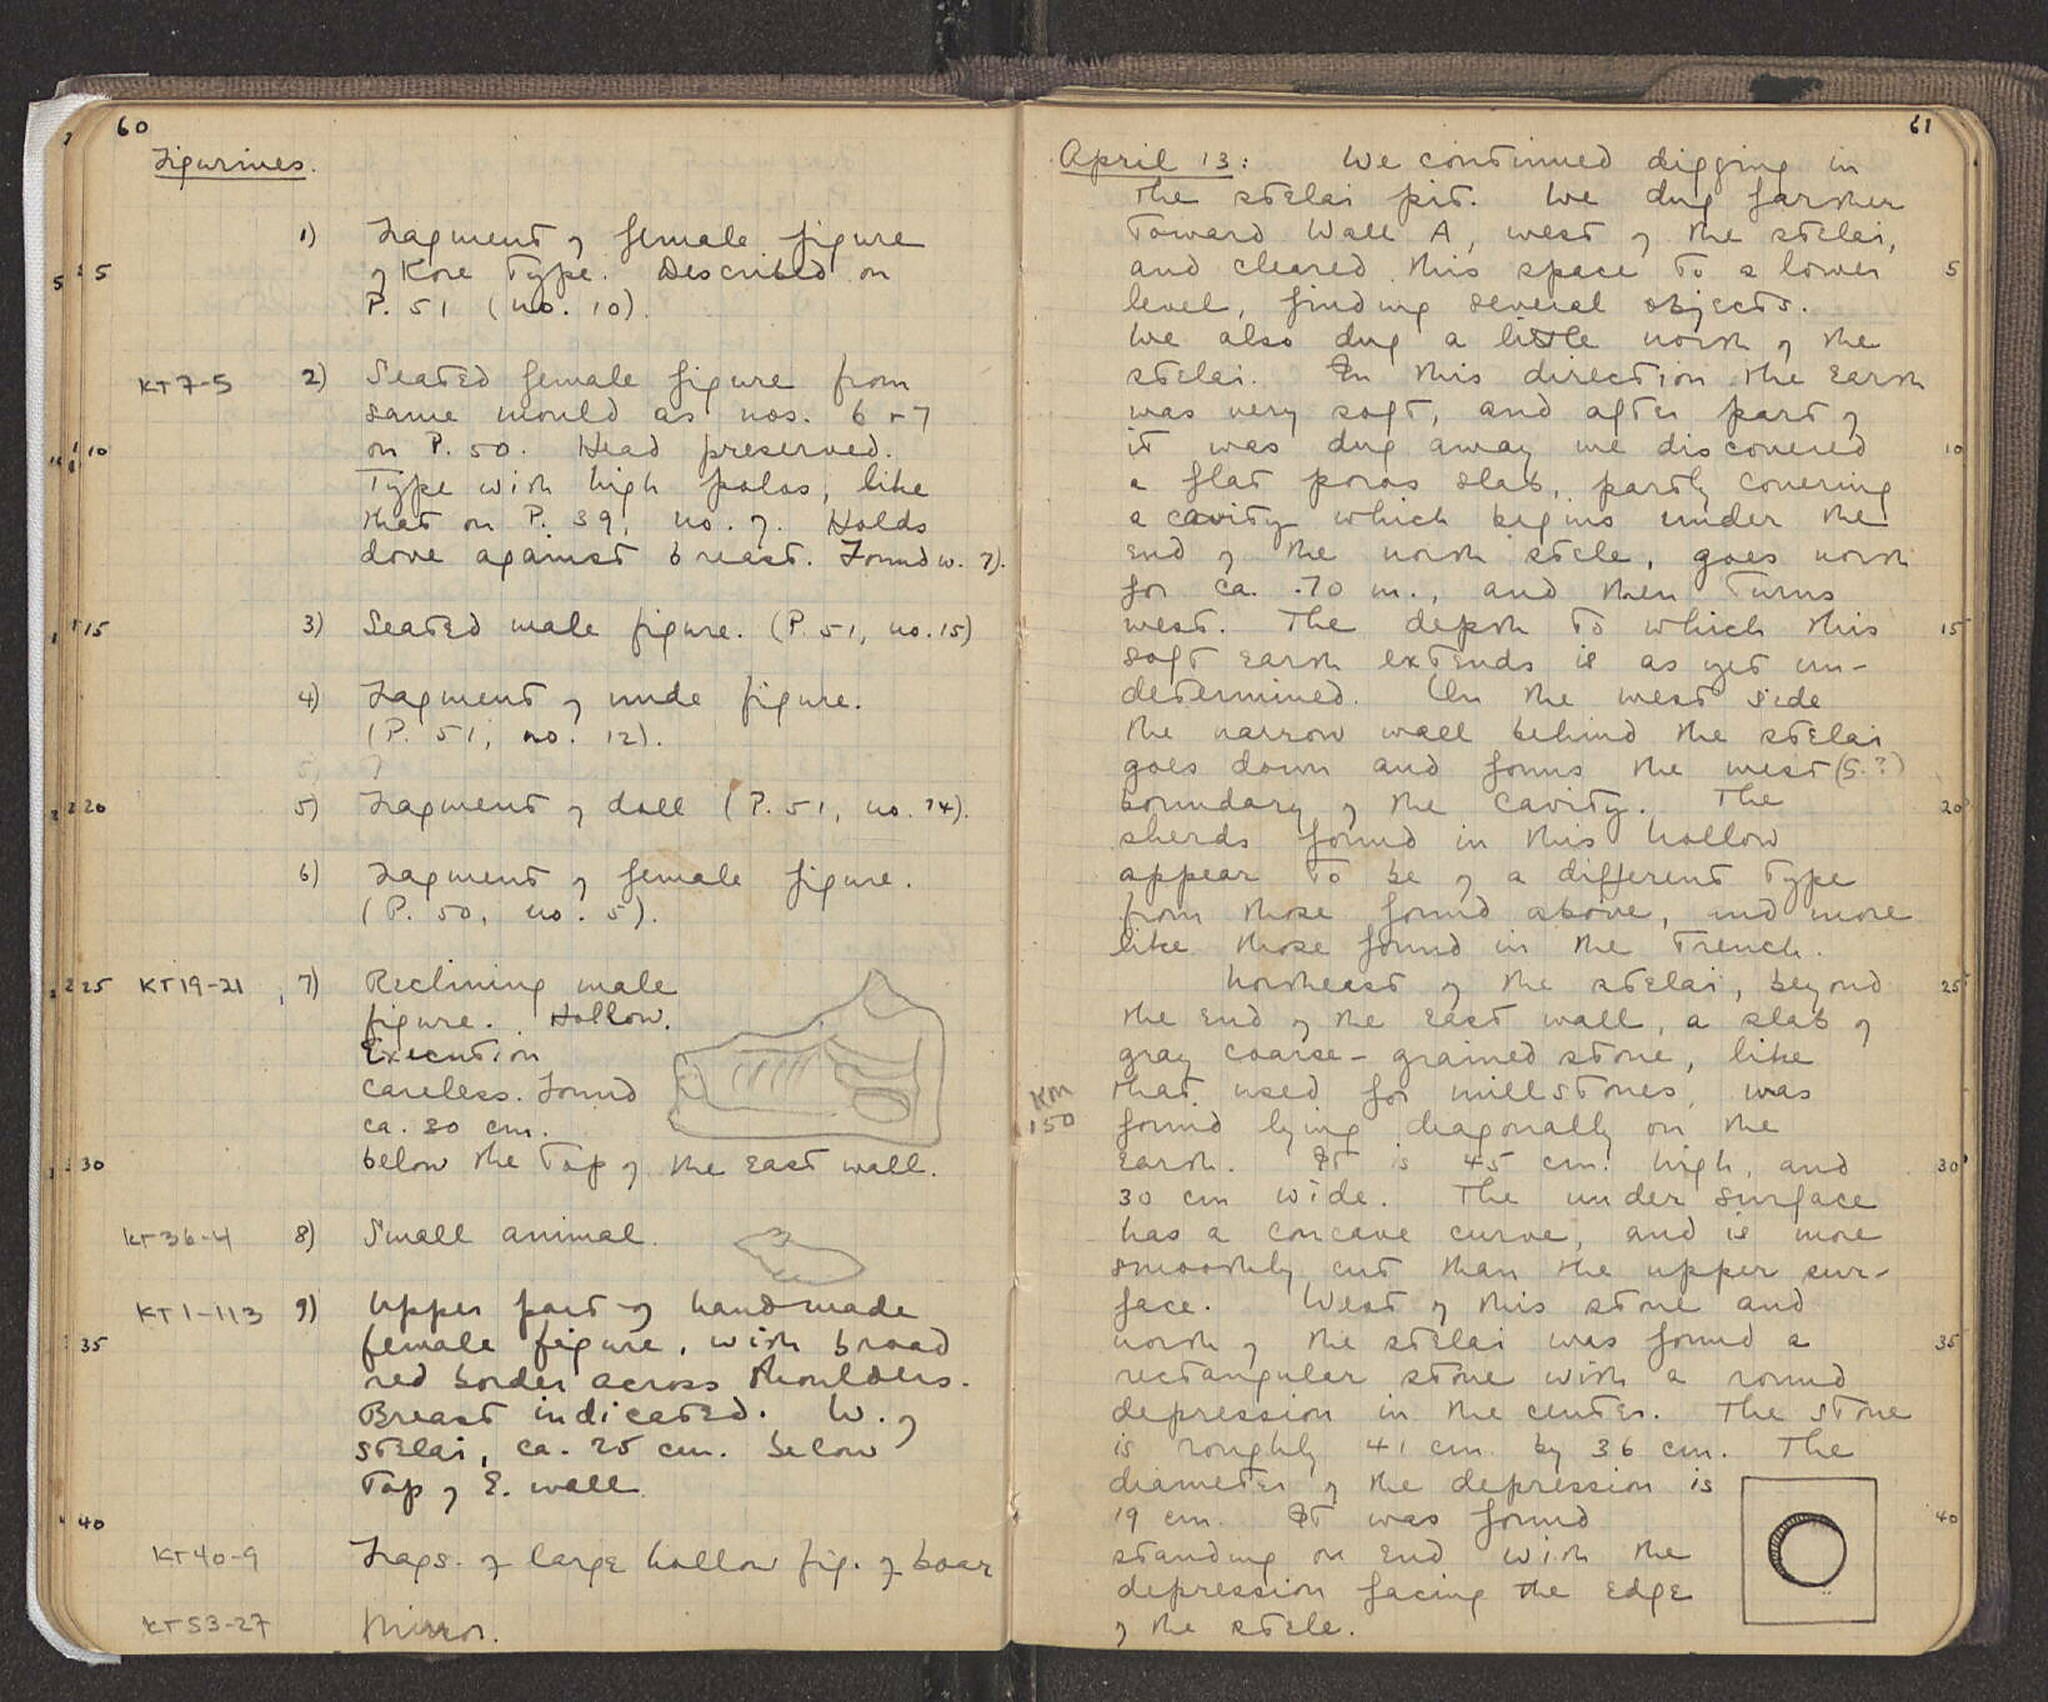 60
Figurines.
1) Fragment of female figure
of Kore type. Described on
5
P. 51 (no. 10).
KT7-5 2) Seated female figure from
same mould as nos. 6 + 7
10 on P. 50. Head preserved.
Type with high polos, like
that on P. 39, no. 7. Holds
dove against breast. Found w. 7).
15 3) Seated male figure. (P. 51, no. 15)
4) Fragment of nude figure.
(P. 51, no. 12).
20 5) Fragment of doll (P. 51, no. 14).
6) Fragment of female figure.
(P. 50, no. 5).
25 KT19-21 7) Reclining male
figure. Hollow.
Execution
careless. Found
ca. 30 cm.
30 below the top of the east wall.
KT36-4 8) Small animal.
KT1-113 9) Upper part of handmade
35 female figure, with broad
red border across shoulders.
Breast indicated. W. of
stelai, ca. 25 cm. below
top of E. wall.
40
KT40-9 Frags. of large hollow fig. of boar
KT53-27 Mirror.
61
April 13: We continued digging in
the stelai pit. We dug farther
toward Wall A, west of the stelai,
and cleared this space to a lower 5
level, finding several objects.
We also dug a little north of the
stelai. In this direction the earth
was very soft, and after part of
it was dug away we discovered 10
a flat poros slab, partly covering
a cavity which begins under the
end of the north stele, goes north
for ca. .70 m., and then turns
west. The depth to which this 15
soft earth extends is as yet un-
determined. On the west side
the narrow wall behind the stelai
goes down and forms the west (S.?)
boundary of the cavity. The 20
sherds found in this hollow
appear to be of a different type
from those found above, and more
like those found in the trench.
Northeast of the stelai, beyond 25
the end of the east wall, a slab of
gray coarse-grained stone, like
KM
150
that used for millstones, was
found lying diagonally on the
earth. It is 45 cm. high, and 30
30 cm wide. The under surface
has a concave curve, and is more
smoothly cut than the upper sur-
face. West of this stone and
north of the stelai was found a 35
rectangular stone with a round
depression in the center. The stone
is roughly 41 cm by 36 cm. The
diameter of the depression is
19 cm. It was found 40
standing on end with the
depression facing the edge
of the stele.